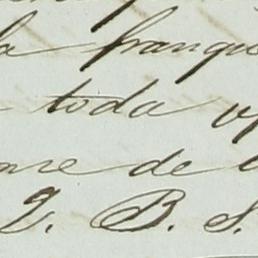 la franqu
toda
me de
Q. B. S.